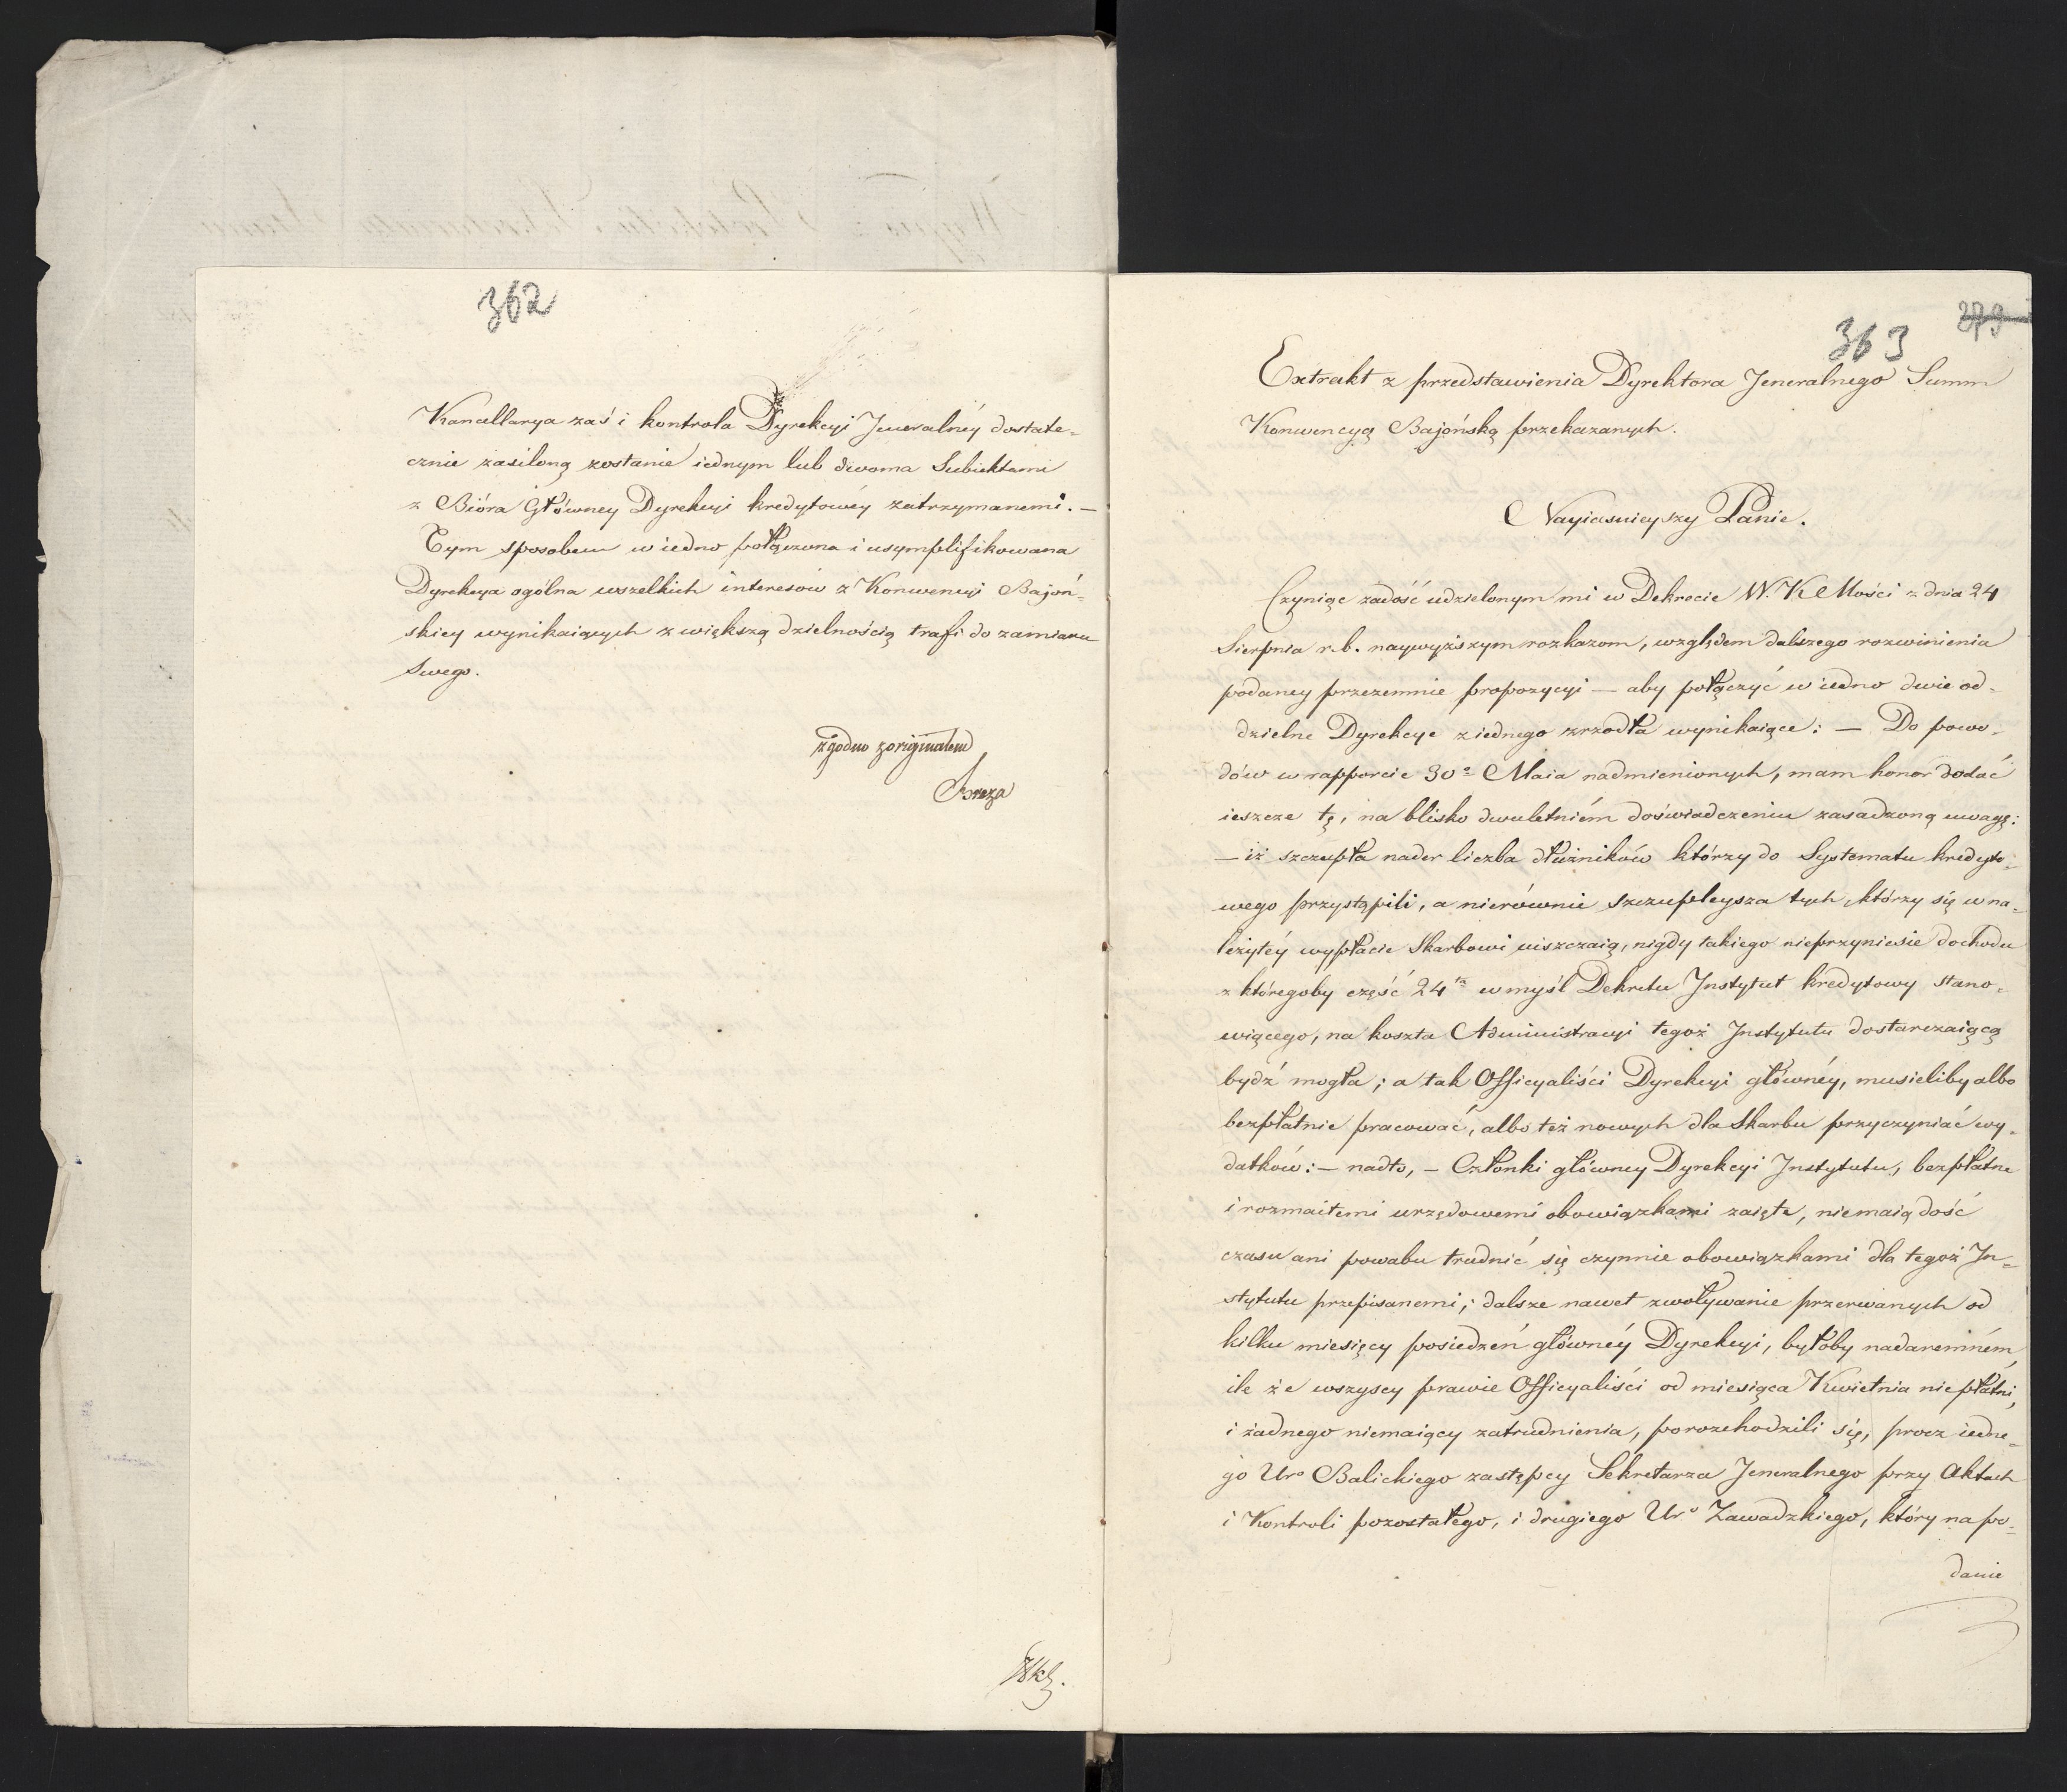 362
Kancellarya zaś i kontrola Dyrekcyi Jeneralnéy dostate=
cznie zasiloną zostanie iednym lub dwoma Subiektami
z Bióra Główney Dyrekcyi kredytowéy zatrzymanemi. —
Tym sposobem w iedno połączona i usymplifikowana
Dyrekcya ogólna wszelkich interesow z Konwencyi Bajoń=
skiey wynikaiących z większą dzielnością trafi do zamiaru
swego.
zgodno z originałem
Breza
363
273
Extrakt z przedstawienia Dyrektora Jeneralnego Summ
Konwencyą Bajońską przekazanych.
Nayiasnieyszy Panie.
Czyniąc zadość udzielonym mi w Dekrecie W. K Mości z dnia 24
Sierpnia r.b. naywyższym rozkazom, względem dalszego rozwinienia
podaney przezemnie propozycyi — aby połączyć w iedno dwie od=
dzielne Dyrekcye z iednego zrzodła wynikaiące: — Do powo=
dów w rapporcie 30° Maia nadmienionych, mam honor dodać
ieszcze tę, na blisko dwuletniém doświadczeniu zasadzoną uwagę:
— iż szczupła nader liczba dłużników którzy do Systematu kredyto=
wego przystąpili, a nierównie szczupleysza tych, którzy się w na=
leżytéy wypłacie Skarbowi uiszczaią, nigdy takiego nieprzyniesie dochodu
z któregoby część 24ta w myśl Dekretu Instytut kredytowy stano=
wiącego, na koszta Administracyi tegoż Instytutu dostarczaiącą
bydź mogła; a tak Officyaliści Dyrekcyi główney, musieliby albo
bezpłatnie pracować, albo też nowych dla Skarbu przyczyniać wy=
datków: — nadto, — Członki główney Dyrekcyi Instytutu, bezpłatne
i rozmaitemi urzędowemi obowiązkami zaięte, niemaią dość
czasu ani powabu trudnić się czynnie obowiązkami dla tegoż In=
stytutu przepisanemi; dalsze nawet zwoływanie przerwanych od
kilku miesięcy posiedzeń główney Dyrekcyi, byłoby nadaremném
ile że wszyscy prawie Officyaliści od miesiąca Kwietnia niepłatni,
i żadnego niemaiący zatrudnienia, porozchodzili się, procz iedne=
go Uro Balickiego zastępcy Sekretarza Jeneralnego przy Aktach
i Kontroli pozostałego, i drugiego Uro Zawadzkiego, który na po=
danie